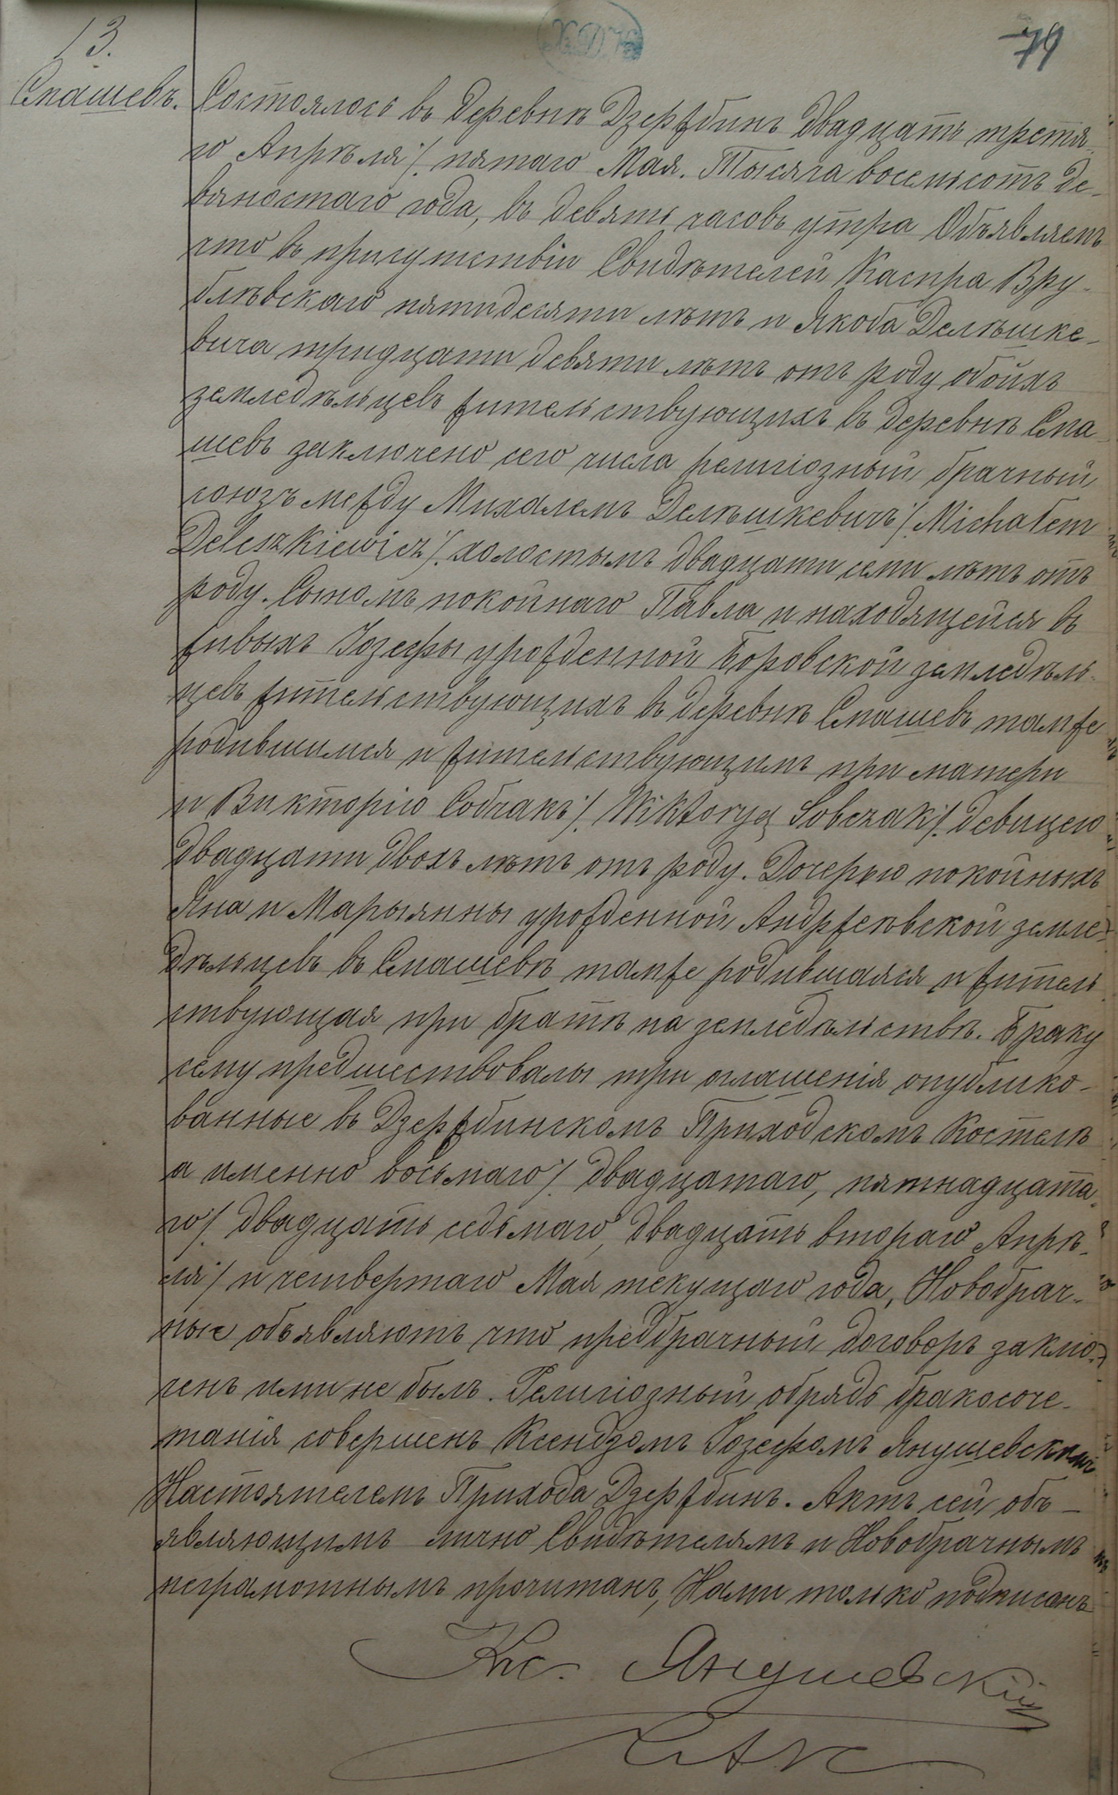 13.
79
Спашевъ.
Состоялось въ деревнѣ Дзержбинъ двадцать третья-
го Апрѣля /. пятаго Мая. Тысяча восемьсотъ де-
вяностаго года, въ девять часовъ утра Объявляемъ
что въ присутствіи Свидѣтелей Каспра Вру-
блѣвскаго пятидесяти лѣтъ и Якоба Делѣшке-
вича тридцати девяти лѣтъ отъ роду обоихъ
земледѣльцевъ жительствующихъ въ деревнѣ Спа-
шевъ заключено сего числа религіозный брачный
союзъ между Михалемъ Делѣшкевичъ /. Michałem
Deleszkiewicz /. холостымъ двадцати семи лѣтъ отъ
роду. Сыномъ покойнаго Павла и находящейся въ
живыхъ Іозефы урожденной Боровской земледѣль-
цевъ жительствующихъ въ деревнѣ Спашевъ тамже
родившимся и жительствующимъ при матери
и Викторіею Собчакъ /. Wiktoryą Sobczak /. девицею
двадцати двохъ лѣтъ отъ роду. Дочерью покойныхъ
Яна и Марыянны урожденной Андржеевской земле-
дѣльцевъ въ Спашевѣ тамже родившаяся и житель
ствующая при братѣ на земледѣльствѣ. Браку
сему предшествовалы три оглашенія опублико-
ванные въ Дзержбинскомъ Приходскомъ Костелѣ
а именно восьмаго /. двадцатаго, пятнадцата-
го /. двадцать седьмаго, двадцать втораго Апрѣ-
ля /. и четвертаго Мая текущаго года, Новобрач-
ные объявляютъ что предбрачный договоръ заклю-
ченъ ими не былъ. Религіозный обрядъ бракосоче-
танія совершенъ Ксендзомъ Іозефомъ Янушевскимъ
Настоятелемъ Прихода Дзержбинъ. Актъ сей объ-
являющимъ лично Свидѣтелямъ и Новобрачнымъ
неграмотнымъ прочитанъ, Нами только подписанъ
Кс. Янушевскій